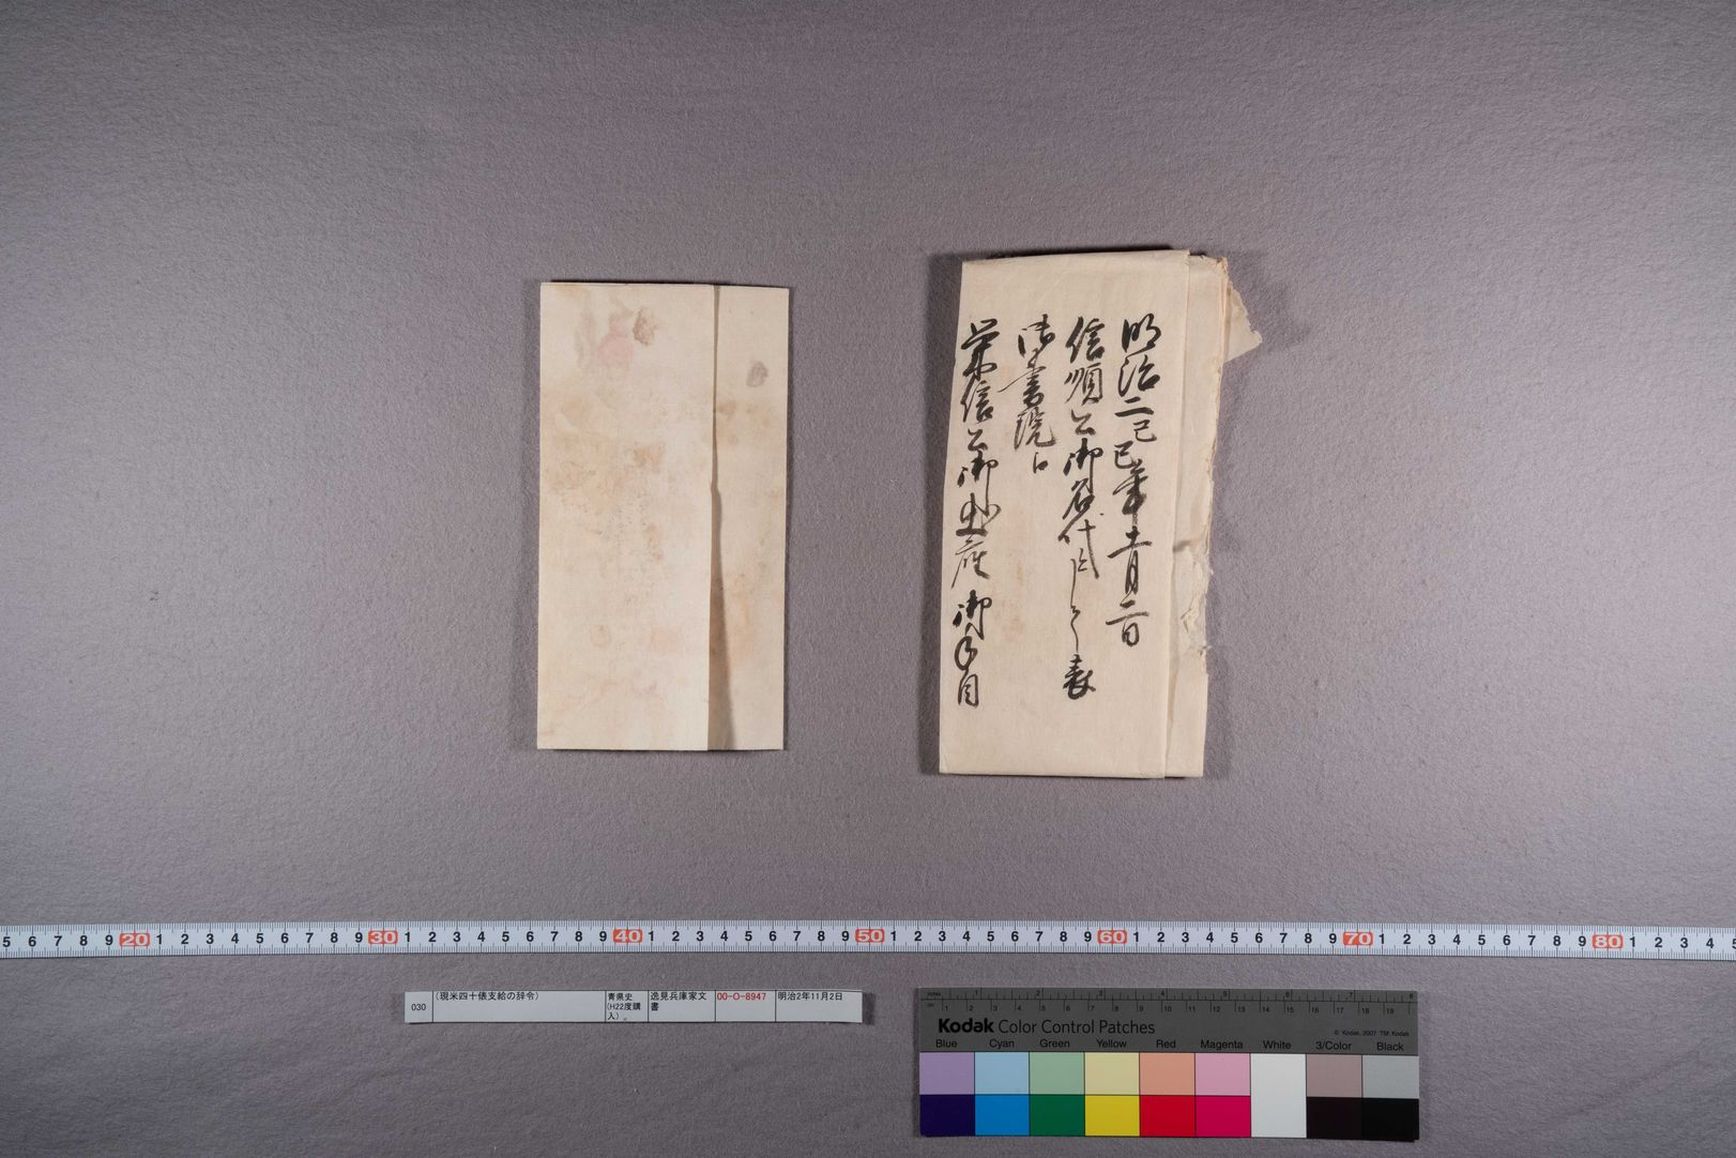 明治二己巳年十一月二日
信順公御名代ニ而於表
御書院ニ
栄信公御出座御手自
5 6 7 8 9 20 1 2 3 4 5 6 7 8 9 30 1 2 3 4 5 6 7 8 9 40 1 2 3 4 5 6 7 8 9 50 1 2 3 4 5 6 7 8 9 60 1 2 3 4 5 6 7 8 9 70 1 2 3 4 5 6 7 8 9 80 1 2 3 4
030 (現米四十俵支給の辞令) 青県史(H22度購入) 逸見兵庫家文書 00-O-8947 明治2年11月2日
Kodak Color Control Patches
© Kodak, 2007 TM: Kodak
Blue Cyan Green Yellow Red Magenta White 3/Color Black